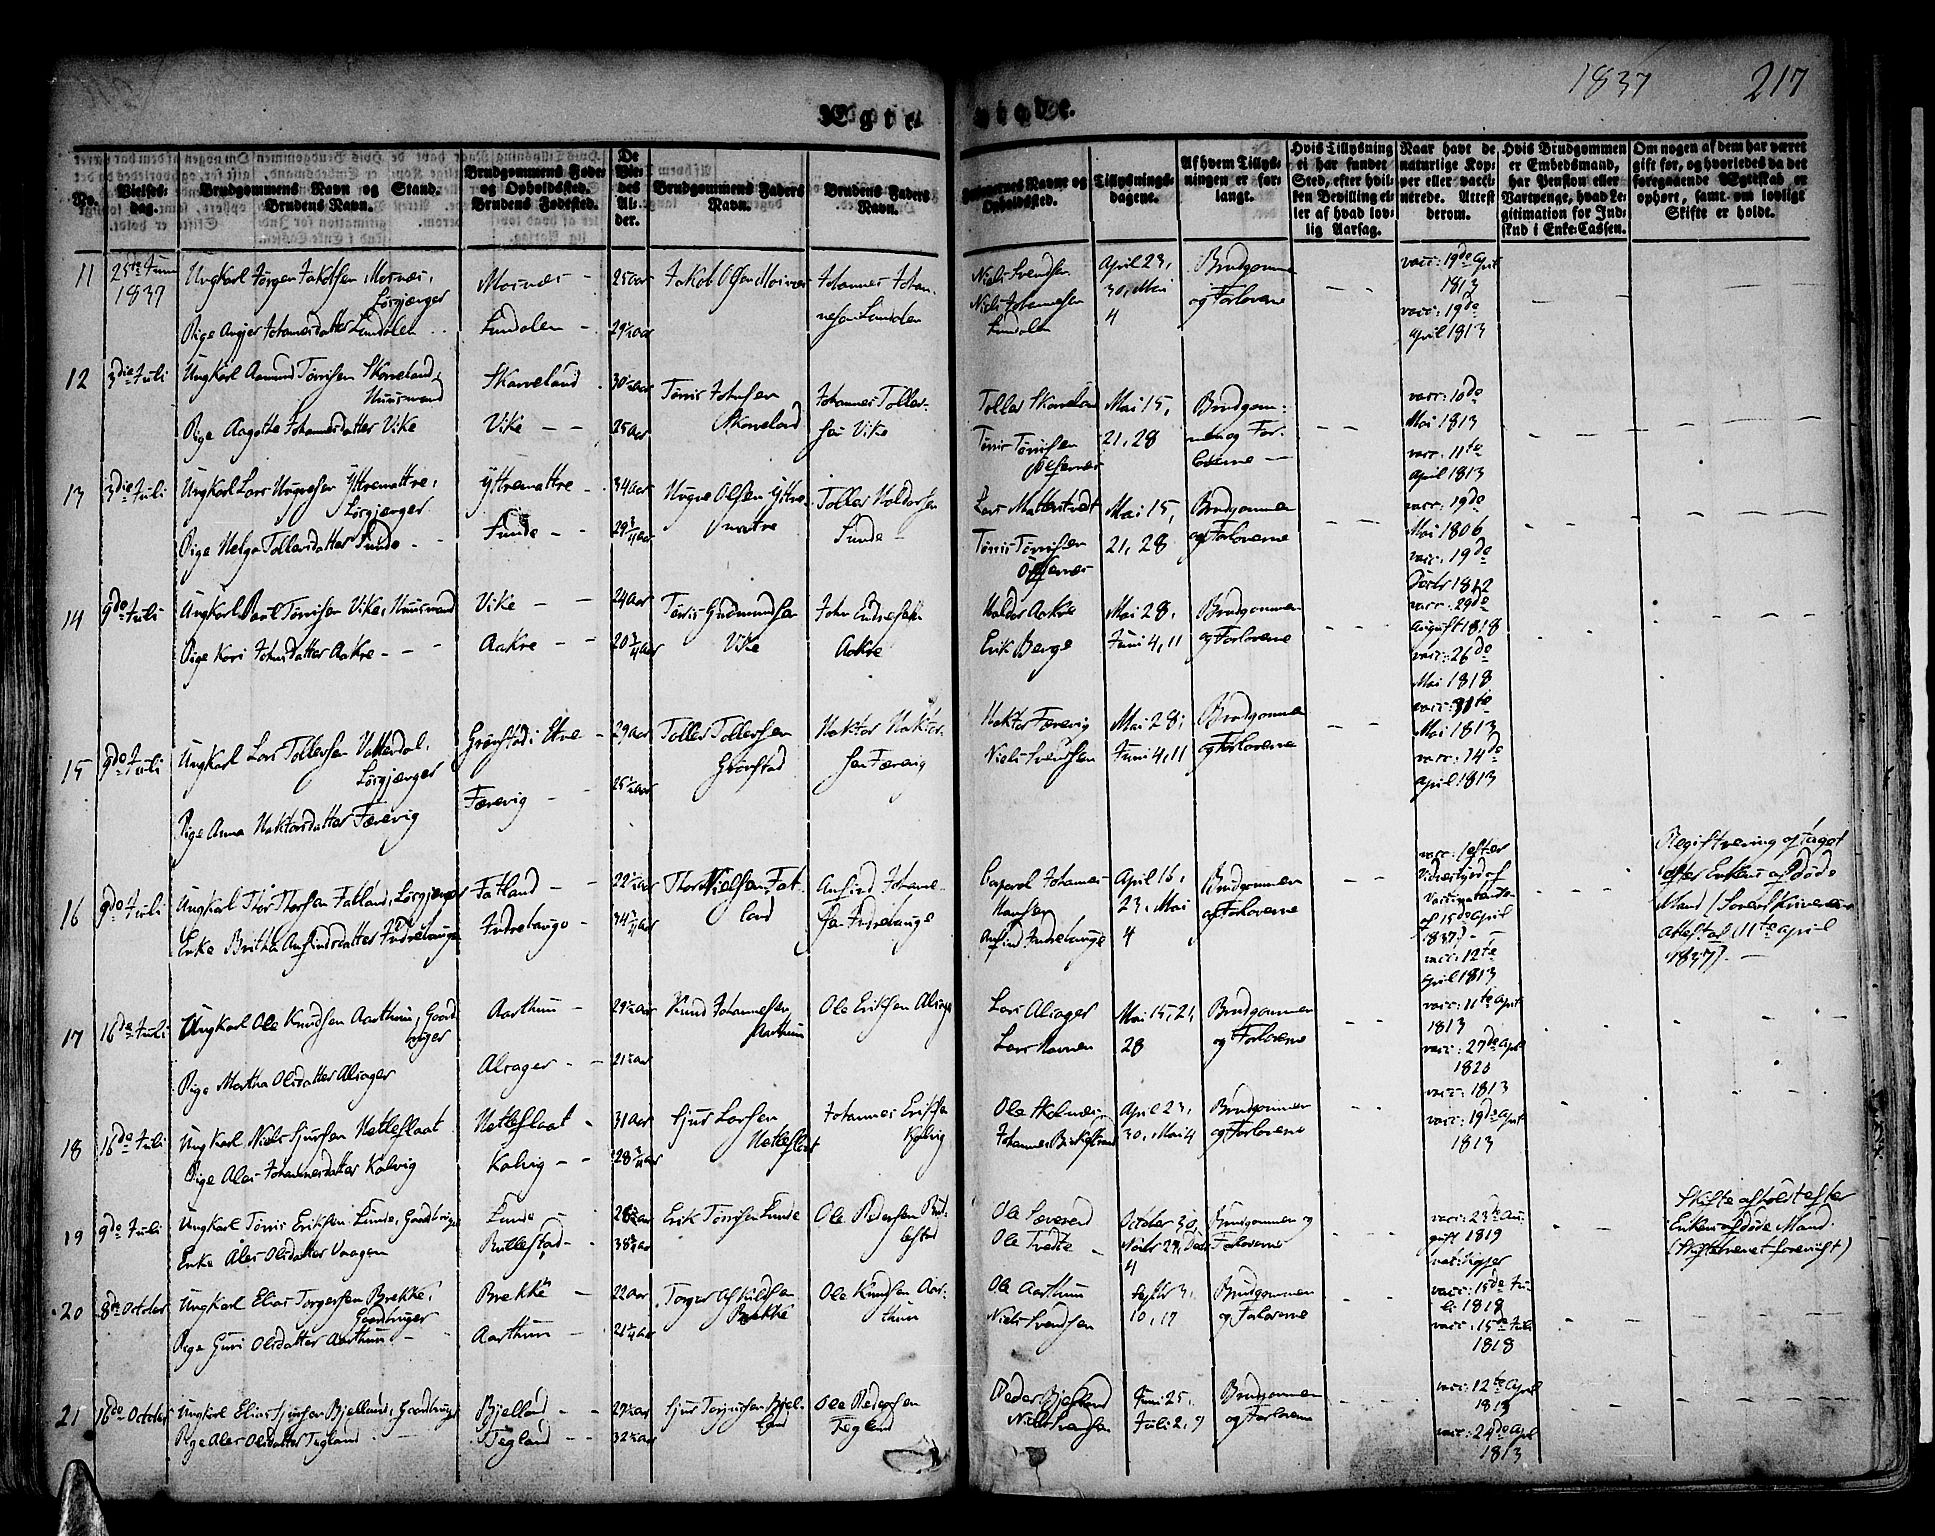 1837 217
Ægte viede.
No.
Vielses-
dag.
Brudgommens Navn og Stand.
Brudens Navn.
Brudgommens Føde-
og Opholdssted.
Brudens Fødested.
De
Vie-
des
Al-
der.
Brudgommens Faders
Navn.
Brudens Faders
Navn.
Forlovernes Navne og
Opholdssted.
Tillysnings-
dagene.
Af hvem Tillys-
ningen er for-
langt.
Hvis Tillysning
ei har fundet
Sted, efter hvil-
ken Bevilling el-
ler af hvad lov-
lig Aarsag.
Naar havt de
naturlige Kop-
per eller vacci-
nerede. Attest
derom.
Hvis Brudgommen
er Embedsmand,
har Pension eller
Vartpenge, hvad Le-
gitimation for Ind-
skud i Enke-Cassen.
Om nogen af dem har været
gift før, og hvorledes da det
foregaaende Ægteskab er
ophørt, samt om lovligt
Skifte er holdt.
11 25de Juni
1837
Ungkarl Jørgen Jakobsen Mosnæs,
Losgjænger
Pige Johannesdatter Lundalen
Mosnæs
Lundalen
25 aar
29½ aar
Jakob Olsen Mosnæs
Johannes Johan-
nesen Lundalen
Niels Svendsen
Niels Johannesen
Lundalen
April 23,
30, Mai
4
Brudgommen
og Forloverne
vacc: 19de April
1813
vacc: 19de
April 1813
12 3die Juli
Ungkarl Aamund Tørrisen Skoveland,
Huusmand
Pige Aagothe Johannesdatter Vike
Skoveland
Vike
30½ aar
25 aar
Tørris Johnsen
Skoveland
Johannes Toller-
sen Vike
Toller Skoveland
Tørris Tørrisen
Mai 15,
21, 28
Brudgom-
men og For-
loverne
vacc: 10de
Mai 1813
vacc: 11te
April 1813
13 3die Juli
Ungkarl Lars Ytrematre,
Losgjænger
Pige Helga Tollersdatter Sunde
Yttremattre
Sunde
34 aar
29¾ aar
Olsen Yttre-
matre
Toller Haldorsen
Sunde
Lars Matterstedt
Tørris Tørrisen
Mai 15,
21, 28
Brudgommen
og Forloverne
vacc: 19de
Mai 1806
vacc: 19de
1812
14 9de Juli
Ungkarl Poul Tørrisen Vike, Huusmand
Pige Kari Johnsdatter Aakre
Vike
Aakre
24 aar
20¾ aar
Tørris Gudmundsen
Vike
John Endresen
Aakre
Haldor Aakre
Erik Berge
Mai 28,
Juni 4, 11
Brudgommen
og Forloverne
vacc: 29de
August 1818
vacc: 26de
Mai 1818
15 9de Juli
Ungkarl Lars Tollersen Vatterdal,
Losgjænger
Pige Anna Haktorsdatter Færevig
Grønstad i Etne
Færevig
29 aar
25½ aar
Toller Tollersen
Grønstad
Haktor Haktor-
sen Færevig
Haktor Færevig
Niels Svendsen
Mai 28,
Juni 4, 11
Brudgommen
og Forloverne
vacc: 31te
Mai 1813
vacc: 14de
April 1813
16 9de Juli
Ungkarl Thor Thorsen Fatland, Losgjænger
Enke Britha Anfindsdatter Indrehauge
Fatland
Indrehauge
22½ aar
34¼ aar
Thor Nielsen Fat-
land
Anfind Johanne-
sen Indrehauge
Johannes
Hansen
Anfind Indrehauge
April 16,
23, Mai
4
Brudgommen
og Forloverne
vacc: (efter
Vidnesbyrd af
Vaccinateur
af 15de April
1837)
vacc: 12te
April 1813
Registrering optaget
efter Enkens afdøde
Mand (Sorenskriverens
Attest af 11te April
1837).
17 16de Juli
Ungkarl Ole Knudsen Aarthun, Gaard-
bruger
Pige Martha Olsdatter Alsager
Aarthun
Alsager
29½ aar
21½ aar
Knud Johannesen
Aarthun
Ole Eriksen Alsager
Lars Alsager
Lars Havnen
Mai 15, 21,
28
Brudgommen
og Forloverne
vacc: 11te April
1813
vacc: 27de April
1820
18 16de Juli
Ungkarl Niels Sjursen Netteflaat
Pige Ales Johannesdatter Kalvig
Netteflaat
Kalvig
31 aar
28¾ aar
Sjur Larsen
Netteflaat
Johannes Eriksen
Kalvig
Ole Skalnæs
Johannes Birkestrand
April 23,
30, Mai 4
Brudgommen
og Forloverne
vacc: 1813
vacc: 19de April
1813
19 9de Juli
Ungkarl Tørris Eriksen Lunde, Gaardbruger
Enke Ales Olsdatter Vaagen
Lunde
Bullestad
26½ aar
38¼ aar
Erik Tørrisen Lunde
Ole Pedersen Bul-
lestad
Ole Sæverud
Ole Tvedte
October 30,
Novbr 27, Decbr
4
Brudgommen og
Forloverne
vacc: 23de Au-
gust 1819
nat: Kopper
Skifte afholdt efter
Enkens afdøde Mand.
(Skifteretten forevist)
20 8de October
Ungkarl Elias Torgersen Brekke,
Gaardbruger
Pige Guri Olsdatter Aarthun
Brekke
Aarthun
22 aar
21¼ aar
Torger Askildsen
Brekke
Ole Knudsen Aar-
thun
Ole Aarthun
Niels Svendsen
Septbr 3,
10, 17
Brudgommen
og Forloverne
vacc: 15de Ju-
li 1818
vacc: 15de Juli
1818
21 16de October
Ungkarl Elias Sjursen Bjelland, Gaardbruger
Pige Ales Olsdatter Tegland
Bjelland
Tegland
29½ aar
32½ aar
Sjur Torjusen Bjel-
land
Ole Pedersen
Tegland
Peder Bjelland
Niels Svendsen
Juni 25,
Juli 2, 9
Brudgommen
og Forloverne
vacc: 12te April
1813
vacc: 24de April
1813